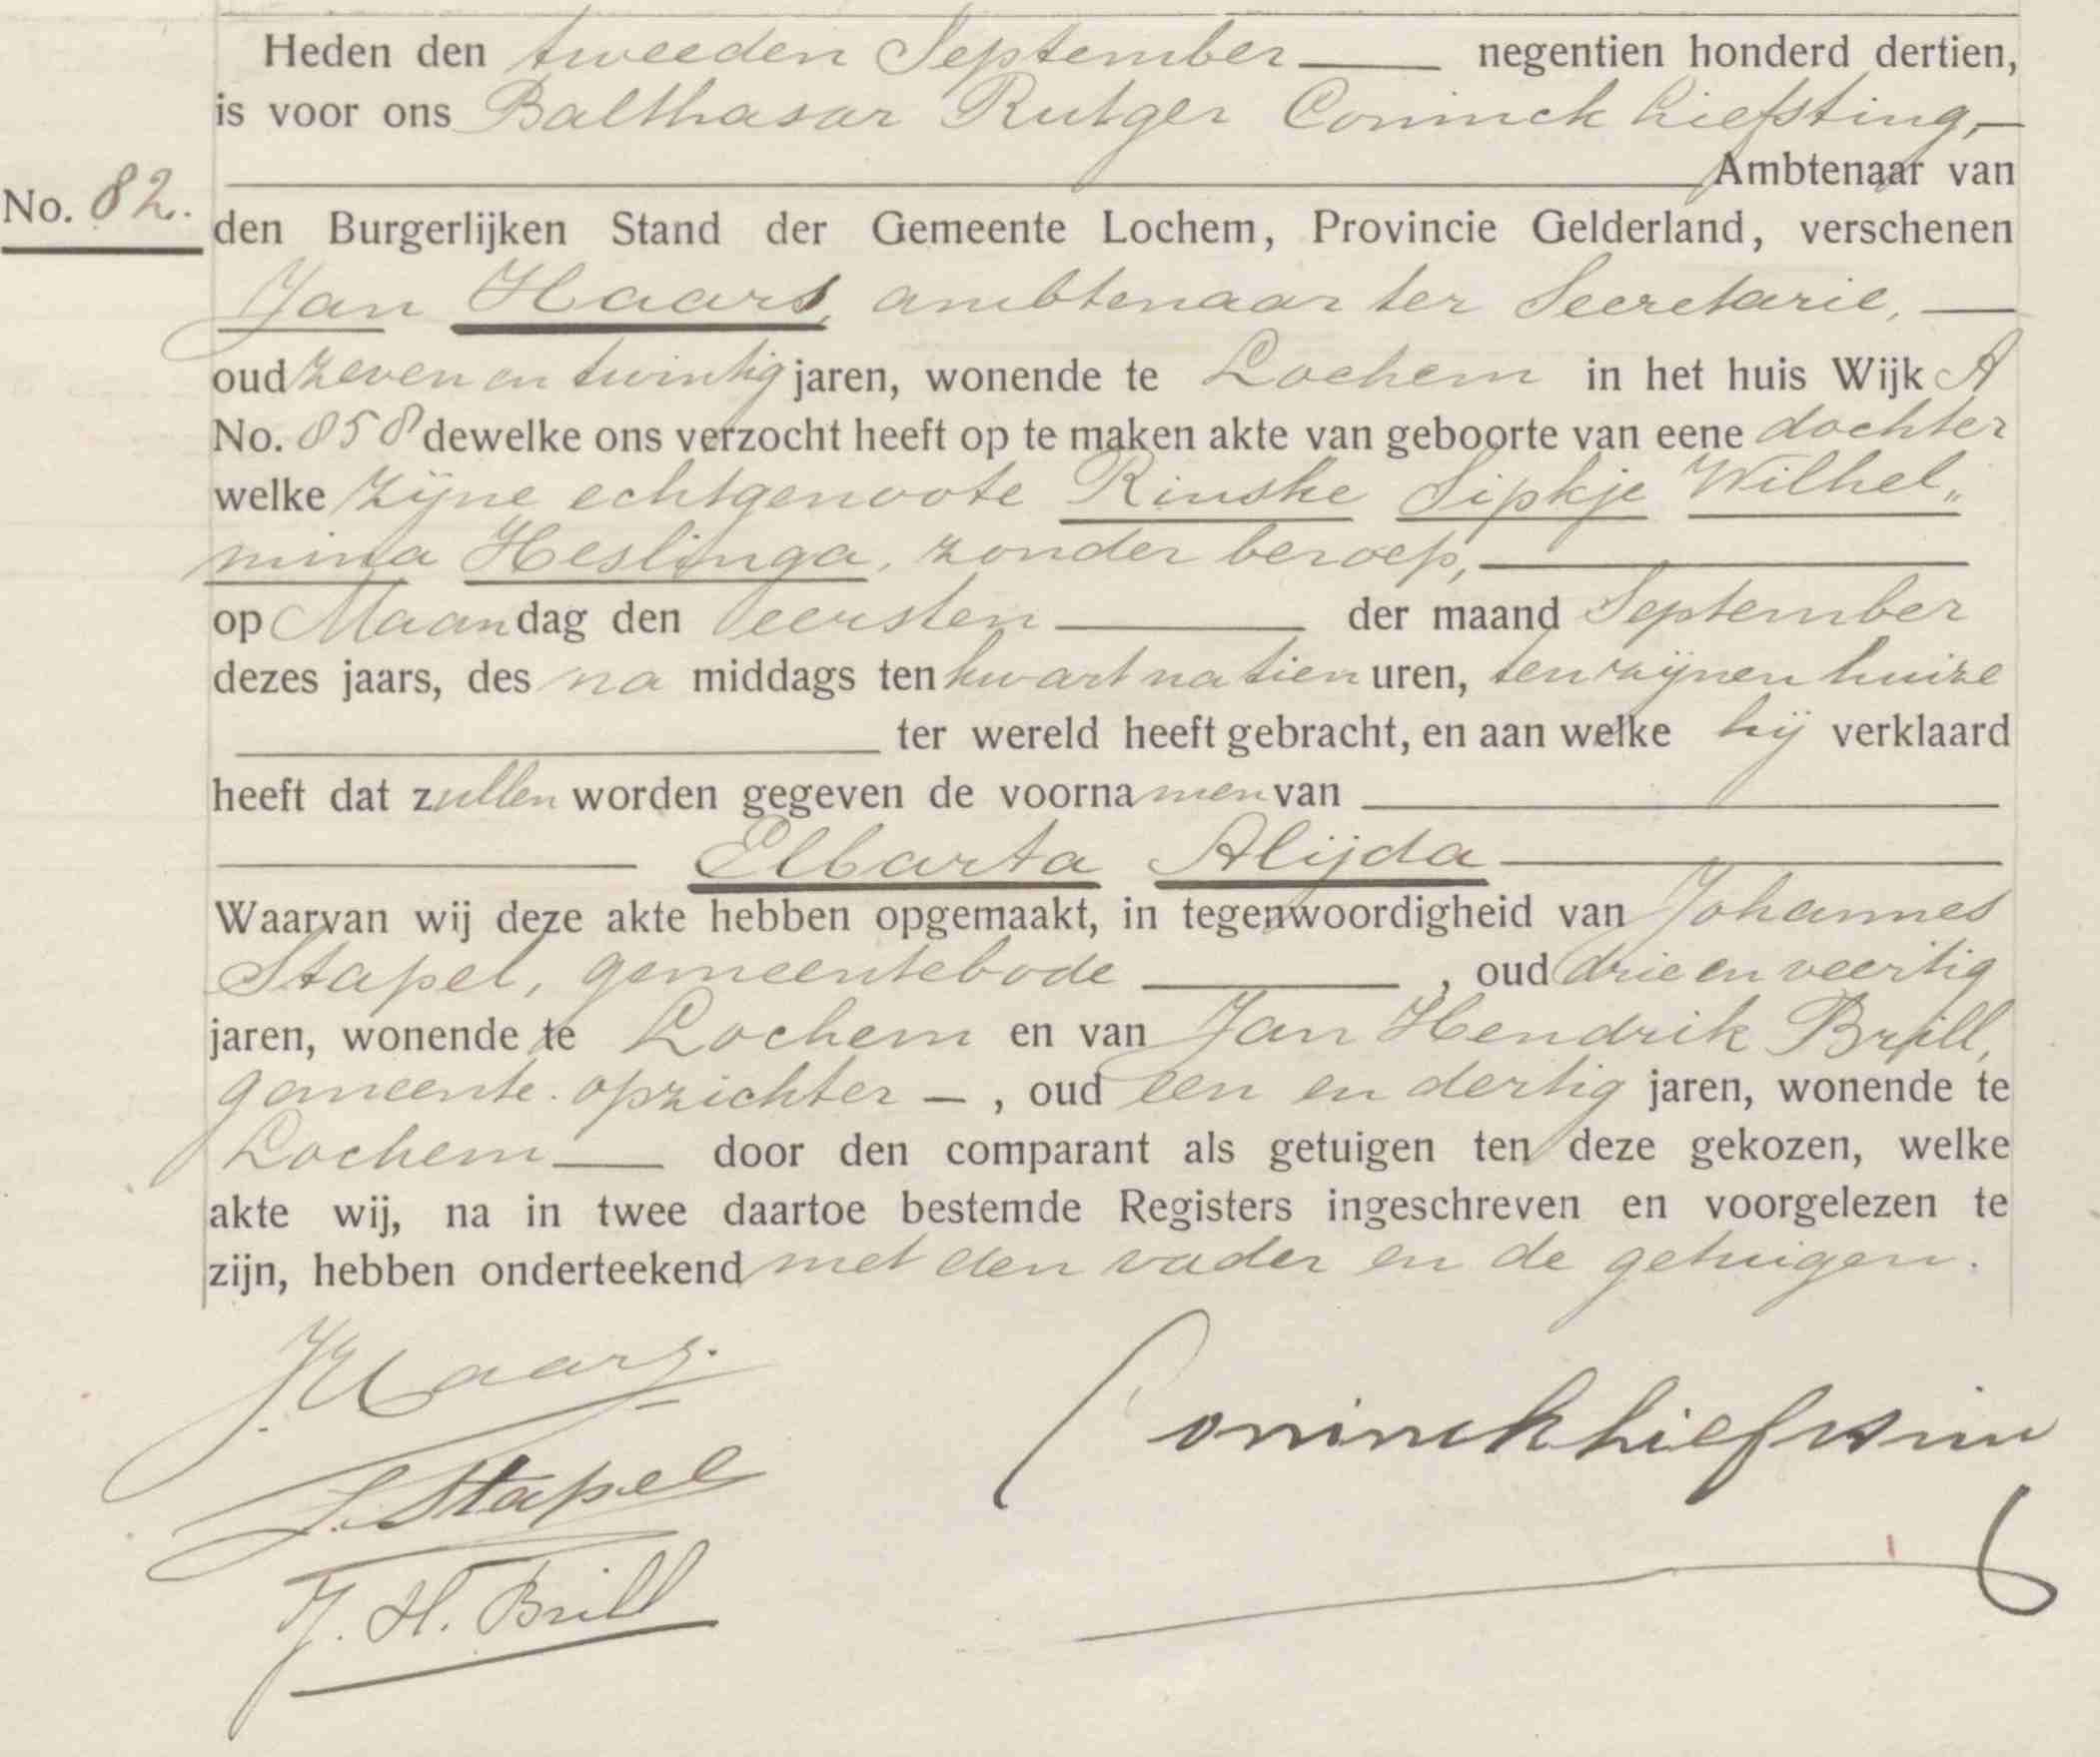 Heden den tweeden September — negentien honderd dertien,
is voor ons Balthasar Rutger Coninck Liefsting,
Ambtenaar van
No. 82.
den Burgerlijken Stand der Gemeente Lochem, Provincie Gelderland, verschenen
Jan Haars, ambtenaar ter Secretarie, —
oud zeven en twintig jaren, wonende te Lochem in het huis Wijk A
No. 858 dewelke ons verzocht heeft op te maken akte van geboorte van eene dochter
welke zijne echtgenoote Rinske Sipkje Wilhel„
mina Heslinga, zonder beroep, —
op Maandag den eersten — der maand September
dezes jaars, des na middags ten kwart na tien uren, ten zijnen huize
ter wereld heeft gebracht, en aan welke hij verklaard
heeft dat zullen worden gegeven de voornamen van —
— Elbarta Alijda —
Waarvan wij deze akte hebben opgemaakt, in tegenwoordigheid van Johannes
Stapel, gemeentebode —, oud drie en veertig
jaren, wonende te Lochem en van Jan Hendrik Brill,
gemeente-opzichter —, oud een en dertig jaren, wonende te
Lochem — door den comparant als getuigen ten deze gekozen, welke
akte wij, na in twee daartoe bestemde Registers ingeschreven en voorgelezen te
zijn, hebben onderteekend met den vader en de getuigen.
J Haars.
Coninck Liefsting
J. Stapel
J. H. Brill